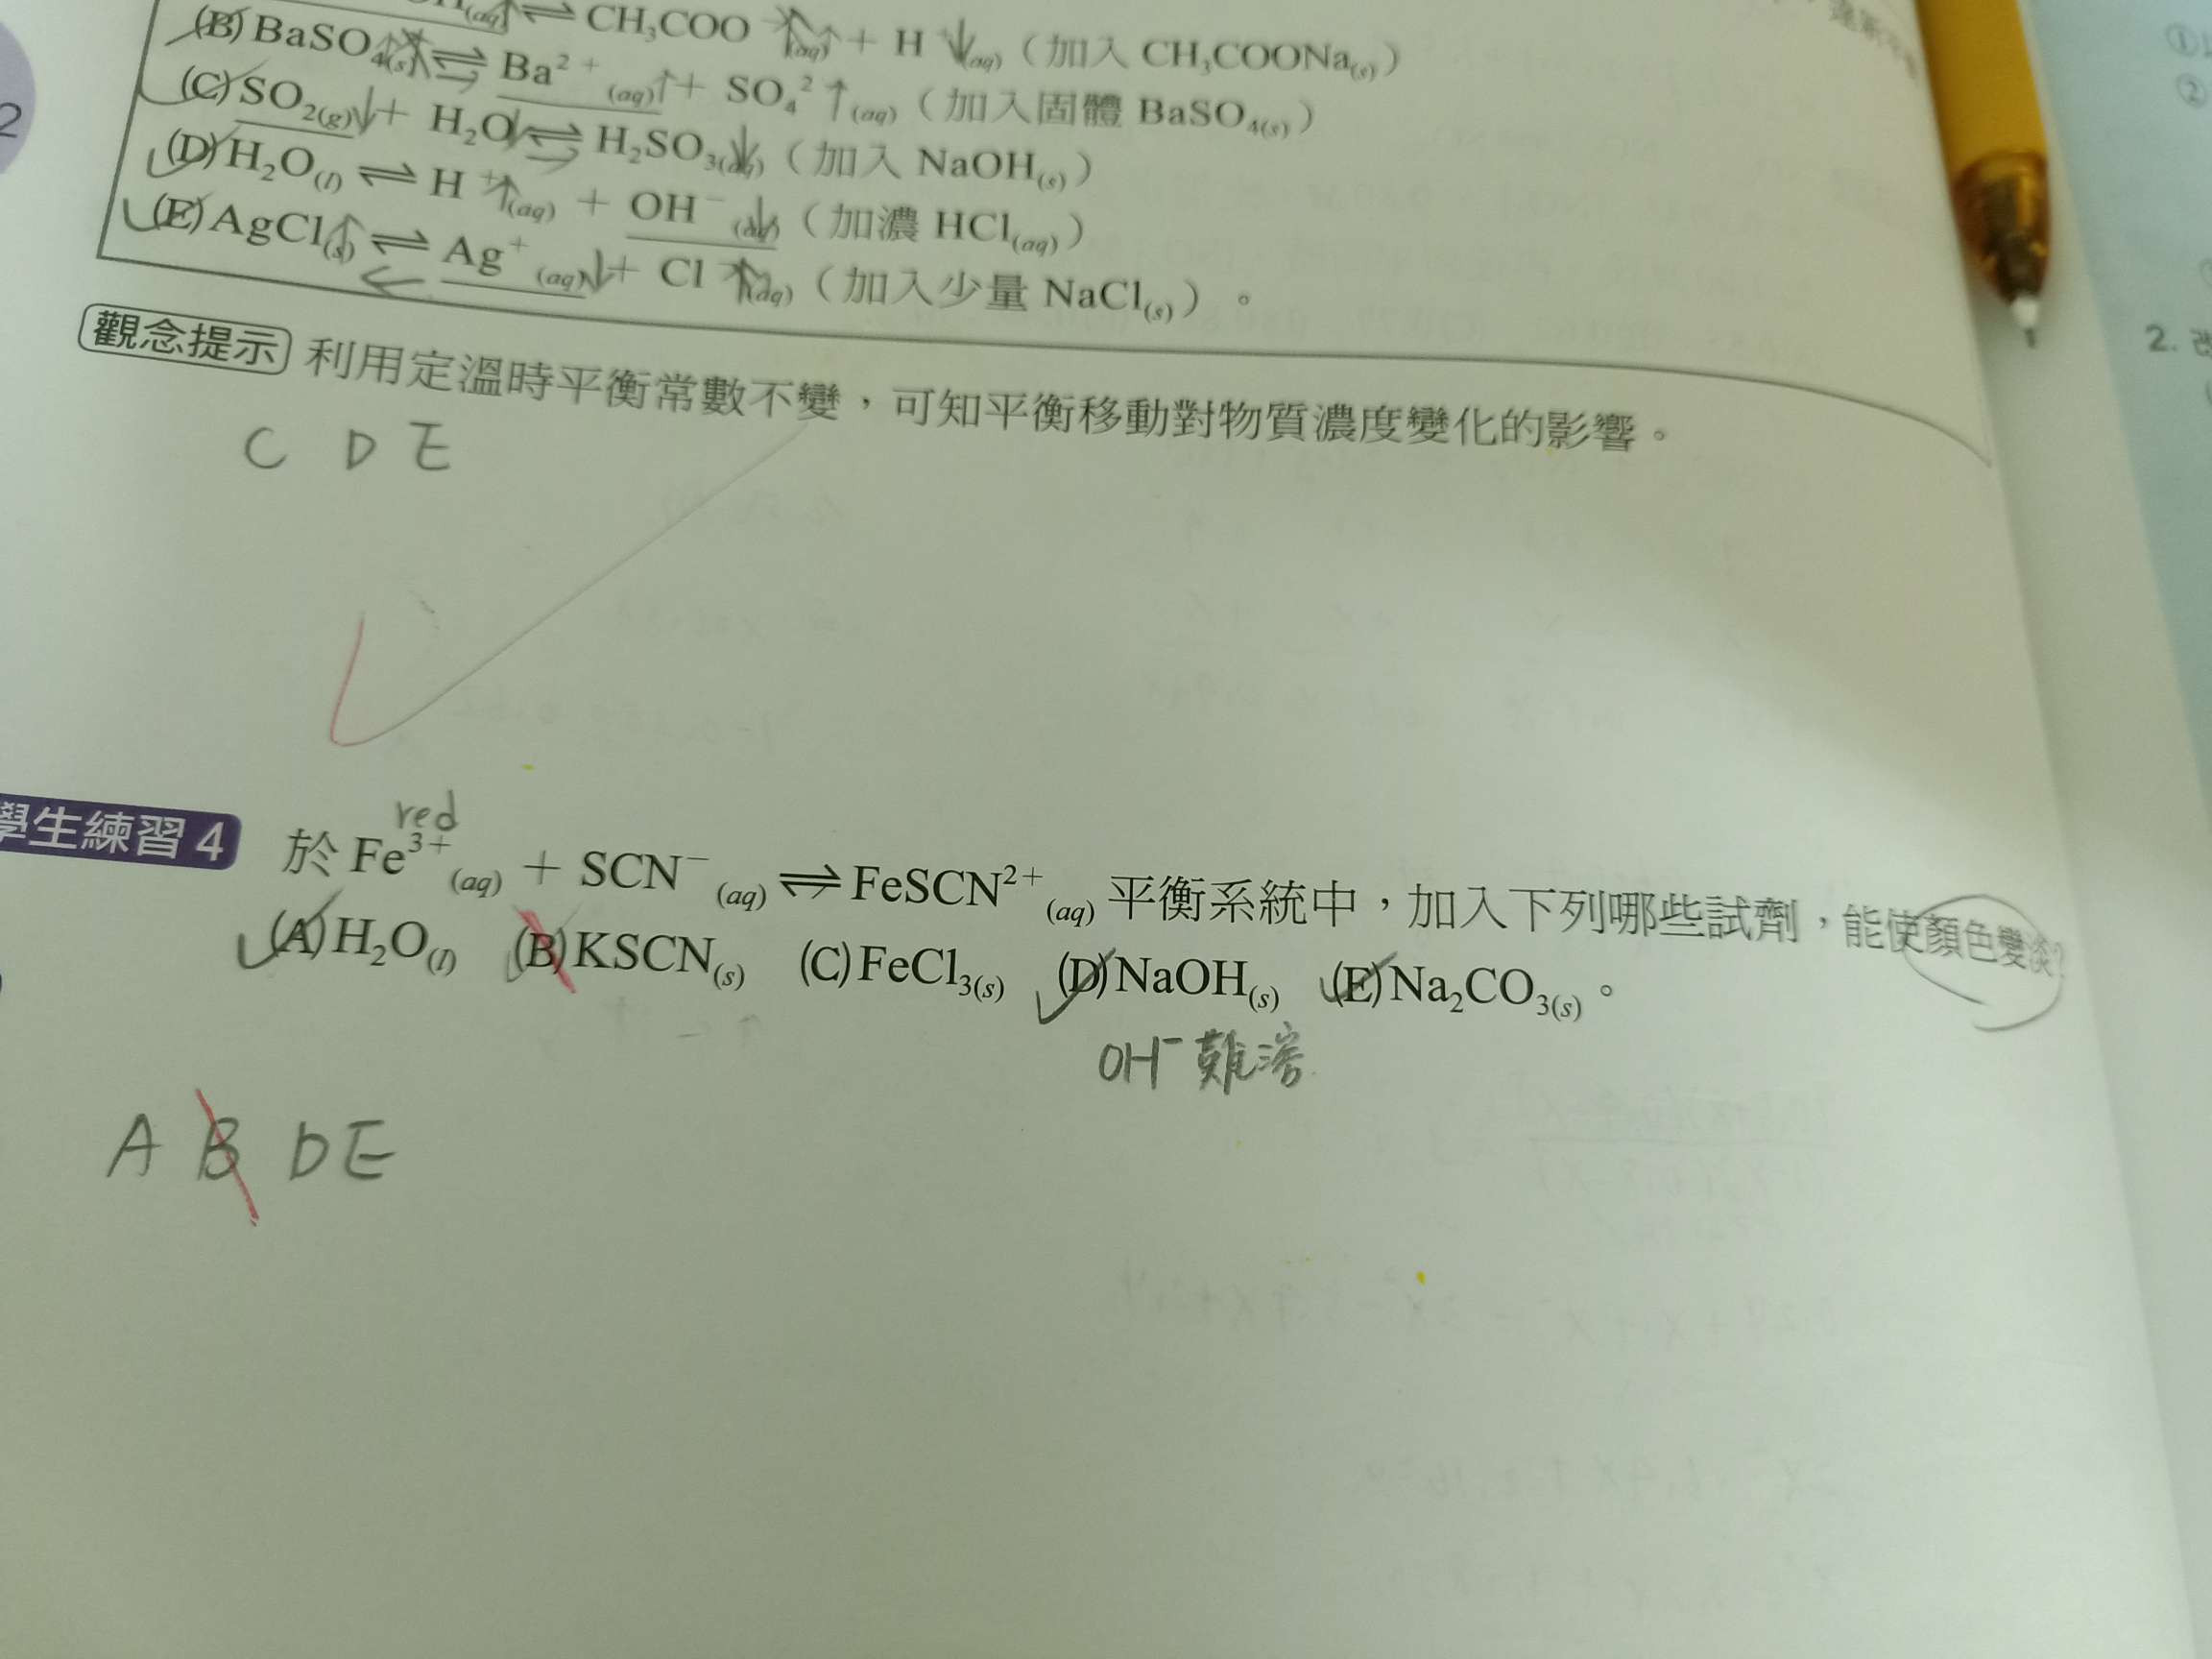 CH₃COO⁻(aq) + H⁺(aq)（加入 CH₃COONa(s)）
(B) BaSO₄(s) ⇌ Ba²⁺(aq) + SO₄²⁻(aq)（加入固體 BaSO₄(s)）
(C) SO₂(g) + H₂O ⇌ H₂SO₃(aq)（加入 NaOH(s)）
(D) H₂O(l) ⇌ H⁺(aq) + OH⁻(aq)（加濃 HCl(aq)）
(E) AgCl(s) ⇌ Ag⁺(aq) + Cl⁻(aq)（加入少量 NaCl(s)）。
觀念提示 利用定溫時平衡常數不變，可知平衡移動對物質濃度變化的影響。
C D E
red
學生練習 4 於 Fe³⁺(aq) + SCN⁻(aq) ⇌ FeSCN²⁺(aq) 平衡系統中，加入下列哪些試劑，能使顏色變淡？
(A) H₂O(l) (B) KSCN(s) (C) FeCl₃(s) (D) NaOH(s) (E) Na₂CO₃(s)。
OH⁻ 難溶
A B D E
2
①
②
2.